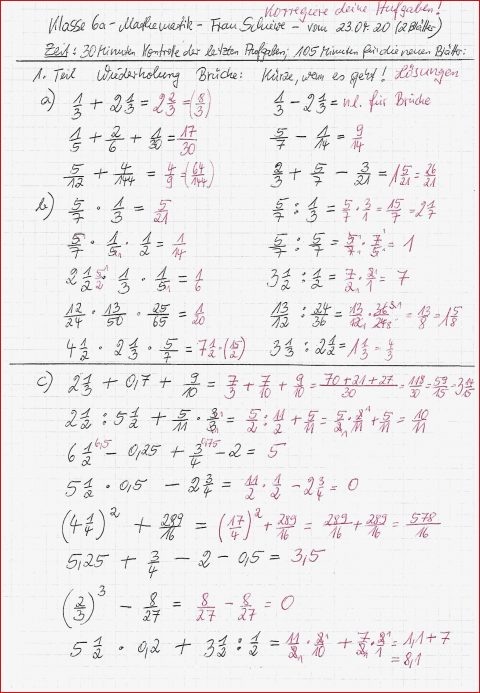 Korregiere deine Aufgaben!
Klasse 6a - Mathematik - Frau Schwier - vom 23.04.20 (2 Blätter)
Zeit: 30 Minuten Kontrolle der letzten Aufgaben, 105 Minuten für die neuen Blätter.
1. Teil Wiederholung Brüche: Kürze, wenn es geht! Lösungen
a) 1/3 + 2 1/3 = 2 2/3 = (8/3)
1/3 - 2 1/3 = n.l. für Brüche
1/5 + 2/6 + 1/30 = 17/30
5/7 - 1/14 = 9/14
5/12 + 4/144 = 4/9 = (64/144)
2/3 + 5/7 - 3/21 = 1 5/21 = 26/21
b) 5/7 · 1/3 = 5/21
5/7 : 1/3 = 5/7 · 3/1 = 15/7 = 2 1/7
5/7 · 1/5 · 1/2 = 1/14
5/7 : 5/7 = 5/7 · 7/5 = 1
2 1/2 · 1/3 · 1/5 = 1/6
3 1/2 : 1/2 = 7/2 · 2/1 = 7
12/24 · 13/50 · 25/65 = 1/20
13/12 : 24/36 = 13/12 · 36/24 = 13/8 = 1 5/8
4 1/2 · 2 1/3 · 5/7 = 7 1/2 · (15/2)
3 1/3 : 2 1/2 = 1 1/3 = 4/3
c) 2 1/3 + 0,7 + 9/10 = 7/3 + 7/10 + 9/10 = 70+21+27/30 = 118/30 = 59/15 = 3 14/15
2 1/2 : 5 1/2 + 5/11 · 3/3 = 5/2 : 11/2 + 5/11 = 5/2 · 2/11 + 5/11 = 10/11
6 1/2 - 0,25 + 3/4 - 2 = 5
5 1/2 · 0,5 - 2 3/4 = 11/2 · 1/2 - 2 3/4 = 0
(4 1/4)² + 289/16 = (17/4)² + 289/16 = 289/16 + 289/16 = 578/16
5,25 + 3/4 - 2 - 0,5 = 3,5
(2/3)³ - 8/27 = 8/27 - 8/27 = 0
5 1/2 · 0,2 + 3 1/2 : 1/2 = 11/2 · 2/10 + 7/2 · 2/1 = 1,1 + 7
= 8,1